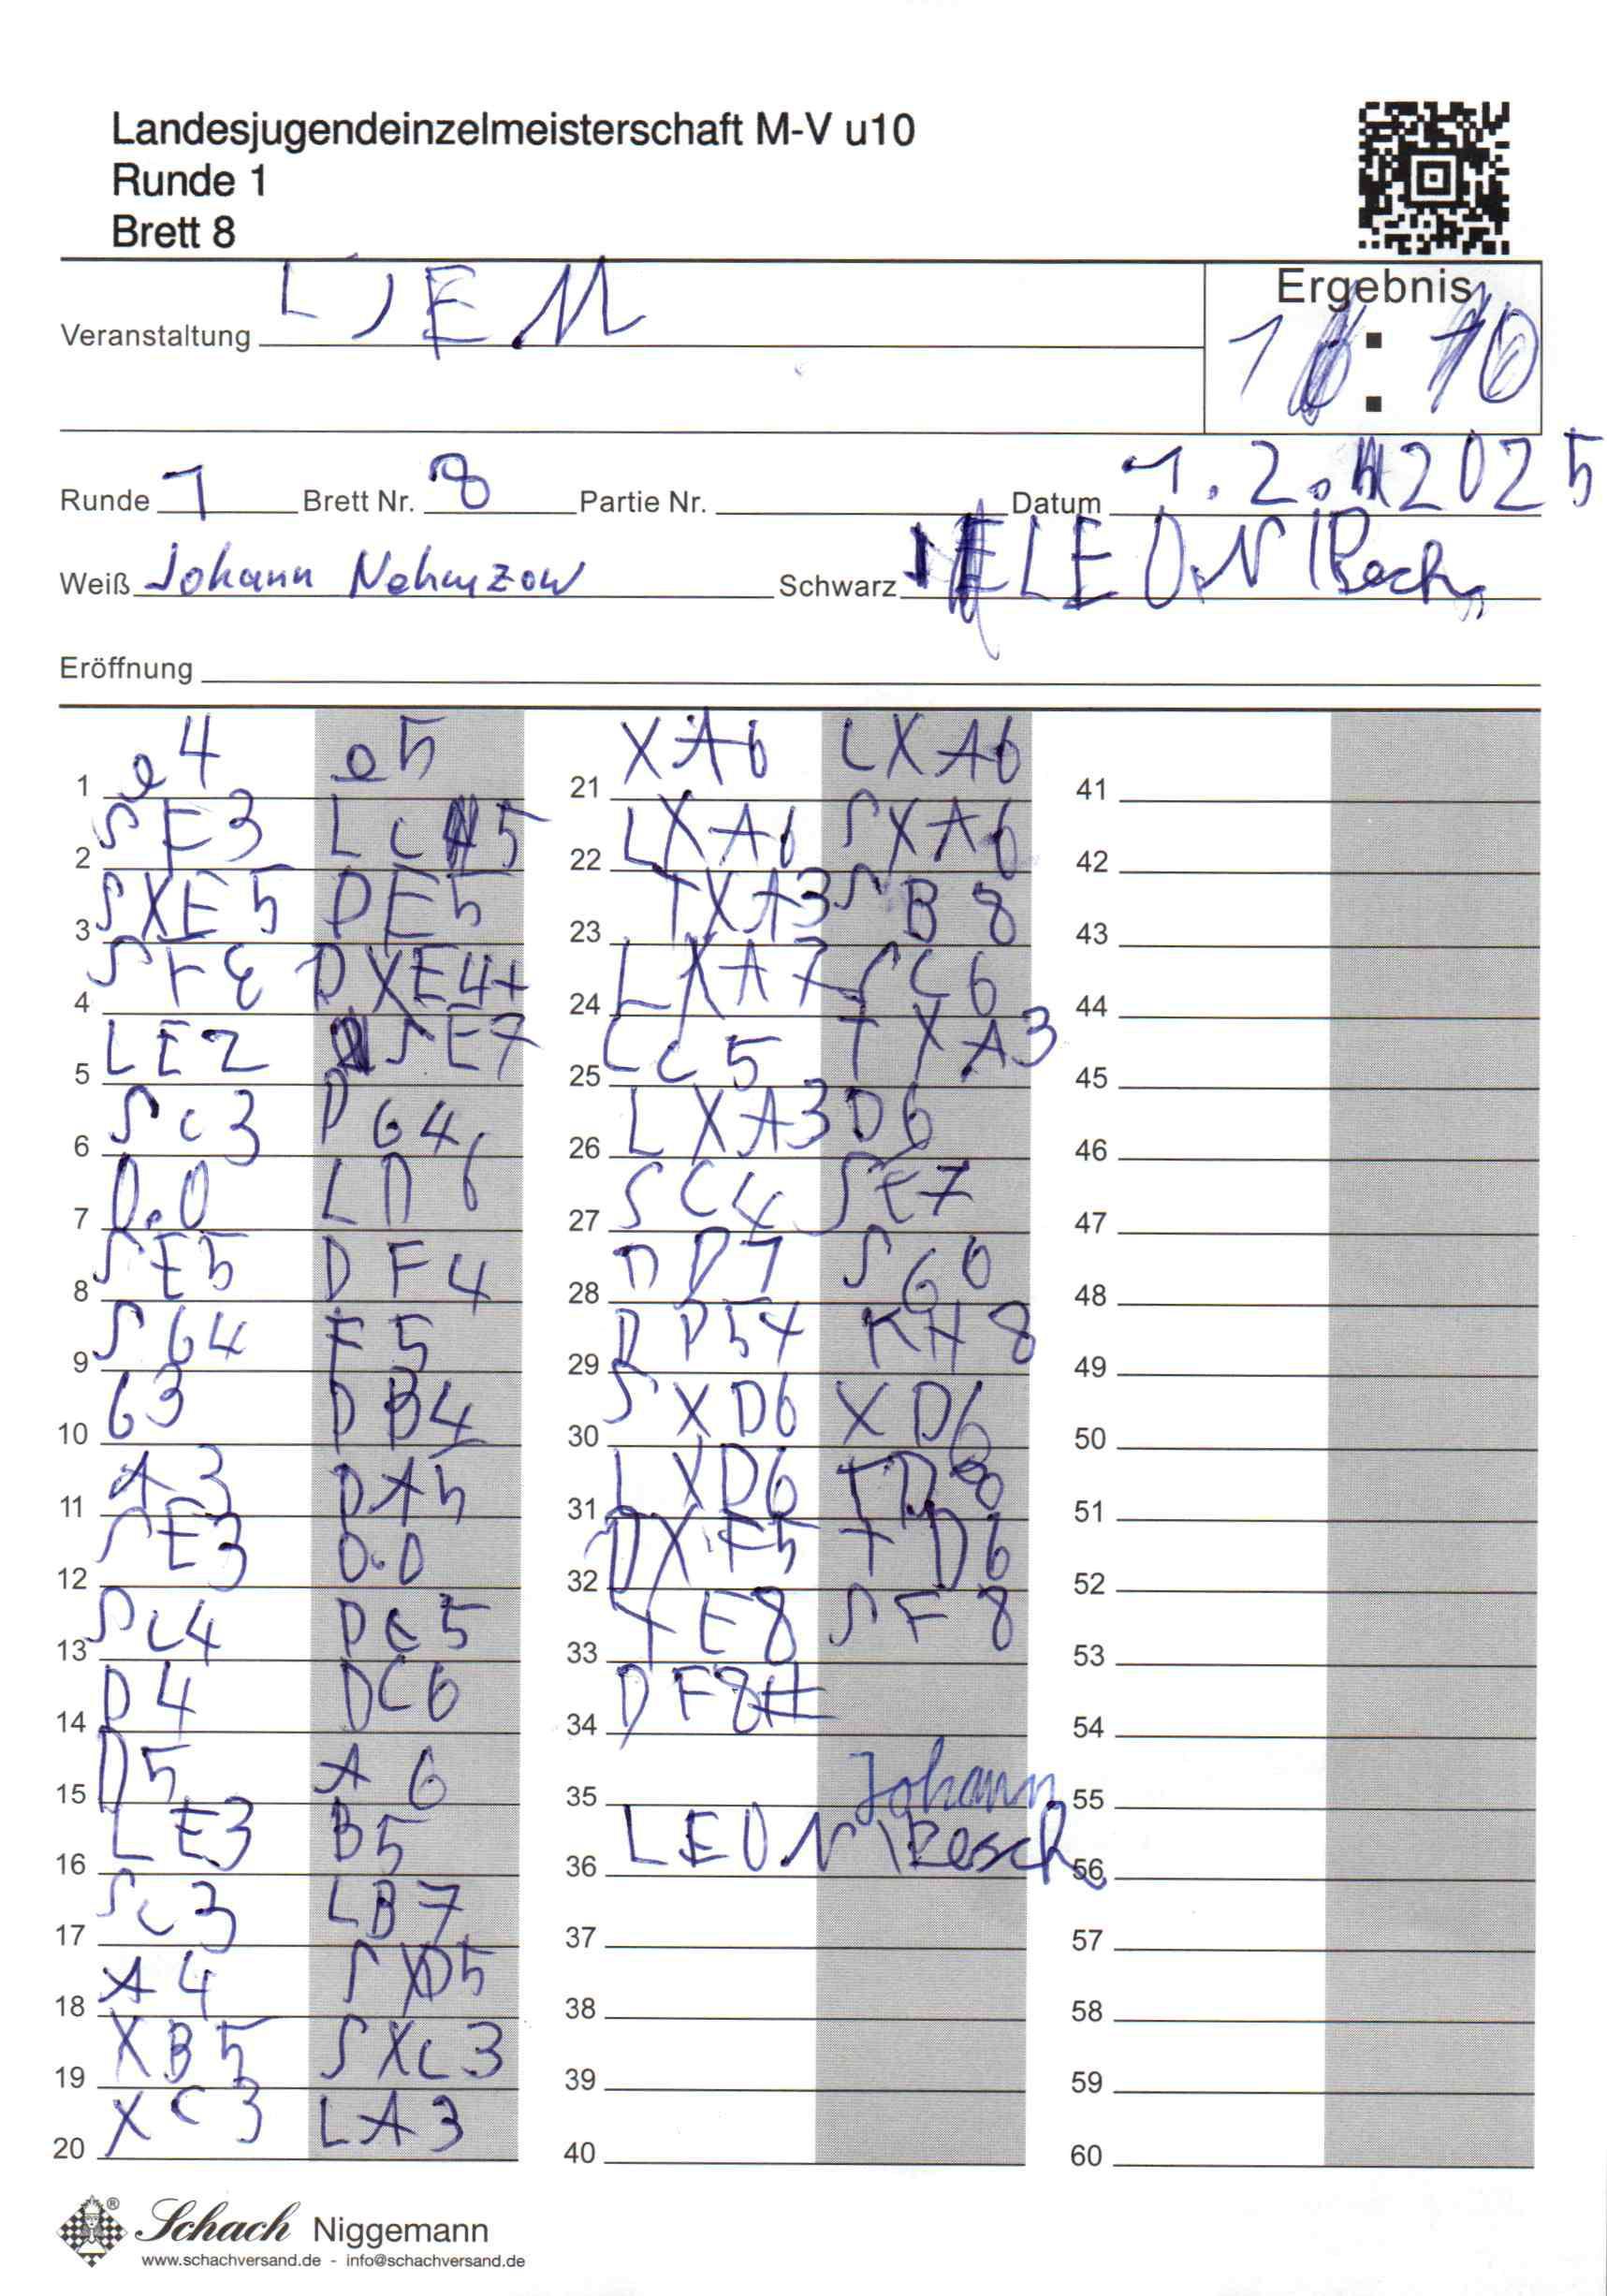 Landesjugendeinzelmeisterschaft M-V u10
Runde 1
Brett 8
Ergebnis
Veranstaltung LJEM
1 : 0
Runde 1 Brett Nr. 8 Partie Nr. Datum 1.2.2025
Weiß Johann Nehmzow Schwarz LEON
Eröffnung
1 e4 e5 21 XA6 LXA6 41
2 SF3 LC5 22 LXA6 SXA6 42
3 SXE5 DE5 23 TXA3 SB8 43
4 SF3 DXE4+ 24 LXA7 SC6 44
5 LE2 SE7 25 LC5 TXA3 45
6 Sc3 DG4 26 LXA3 D6 46
7 0.0 LD6 27 SC4 SE7 47
8 SE5 DF4 28 DD1 SG6 48
9 SG4 F5 29 DD5+ KH8 49
10 G3 DB4 30 SXD6 XD6 50
11 A3 DA5 31 LXD6 TD8 51
12 SE3 0.0 32 DXF5 TD6 52
13 SC4 DC5 33 TE8 SF8 53
14 D4 DC6 34 DF8# 54
15 D5 A6 35 Johann 55
16 LE3 B5 36 LEON Resch 56
17 Sc3 LB7 37 57
18 A4 SXD5 38 58
19 XB5 SXC3 39 59
20 XC3 LA3 40 60
Schach Niggemann
www.schachversand.de - info@schachversand.de